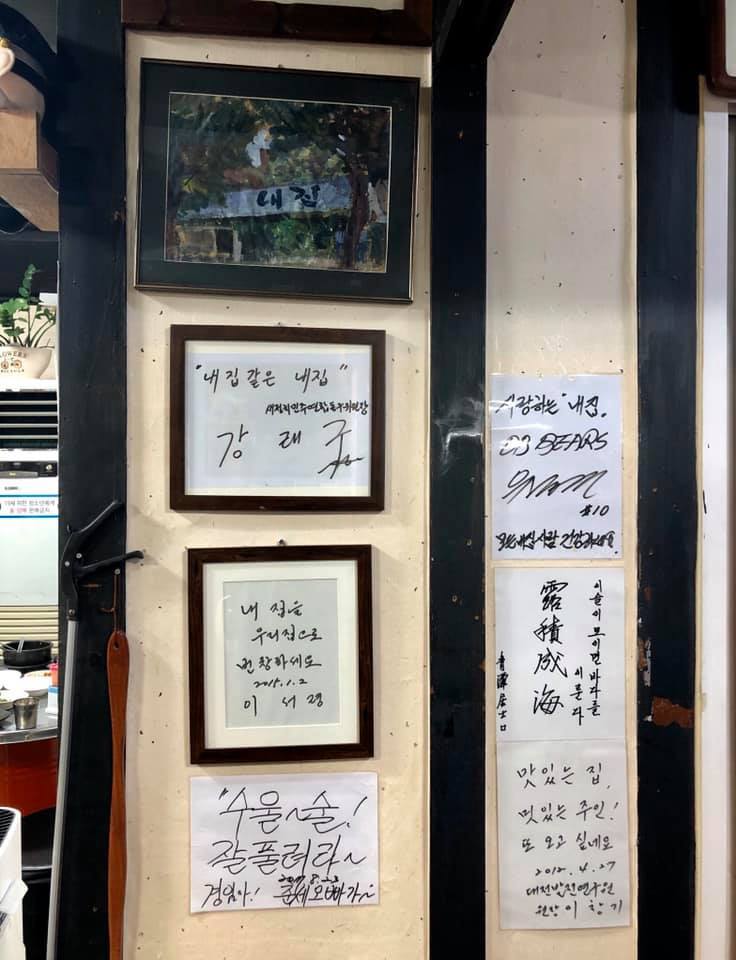 내집
"내 집 같은 내집"
강 래 구
내 집을
우리집으로
번창하세요
2015.1.2
이 서 령
"수울~술!
잘풀려라~
2017.8.23
경임아!
사랑하는 "내집.
OB BEARS
#10
이슬이 모이면 바다를
이룬다
露積成海
맛있는 집,
멋있는 주인!
또 오고 싶네요
2012.4.27
대전발전연구원
원장 이 창 기
FLOWERS